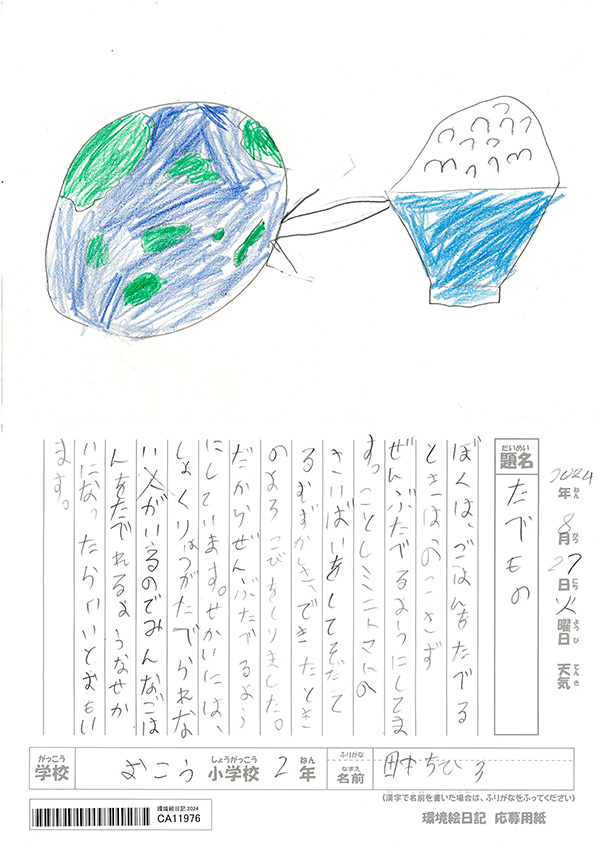 2024年ねん8月がつ27日にち火曜日ようび 天気てんき
題名だいめい たべもの
ぼくは、ごはんをたべる
ときは、のこさず
ぜんぶたべるようにしてま
す。ことしミニトマトの
さいばいをしてそだて
るむずかしさ、できたとき
のよろこびをしりました。
だからぜんぶたべるよう
にしています。せかいには、
しょくりょうがたべられな
い人がいるのでみんなごは
んをたべれるようなせか
いになったらいいとおもい
ます。
学校がっこう むこう 小学校しょうがっこう 2年ねん ふりがな 名前なまえ 田中ちひろ
(漢字で名前を書いた場合は、ふりがなをふってください)
環境絵日記 2024
CA11976
環境絵日記 応募用紙